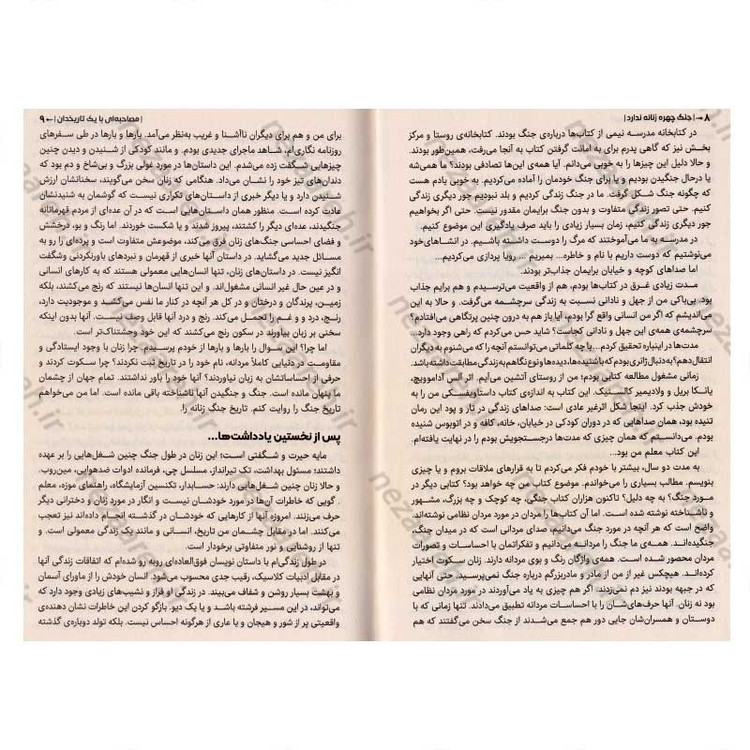 ۸ → | جنگ چهره زنانه ندارد |
در کتابخانه مدرسه نیمی از کتاب‌ها درباره‌ی جنگ بودند. کتابخانه‌ی روستا و مرکز
بخش نیز که گاهی پدرم برای به امانت گرفتن کتاب به آنجا می‌رفت، همین‌طور بودند.
و حالا دلیل این چیزها را به خوبی می‌دانم. آیا همه‌ی این‌ها تصادفی بودند؟ ما همیشه
یا درحال جنگیدن بودیم و یا برای جنگ خودمان را آماده می‌کردیم. به خوبی یادم هست
که چگونه جنگ شکل گرفت. ما در جنگ زندگی کردیم و بلد نبودیم جور دیگری زندگی
کنیم. حتی تصور زندگی متفاوت و بدون جنگ برایمان مقدور نیست. حتی اگر بخواهیم
جور دیگری زندگی کنیم، زمان بسیار زیادی را باید صرف یادگیری این موضوع کنیم.
در مدرسه به ما می‌آموختند که مرگ را دوست داشته باشیم. در انشاهای‌خود
می‌نوشتیم که دوست داریم با نام و خاطره... بمیریم ... رویا پردازی می‌کردیم...
اما صداهای کوچه و خیابان برایمان جذاب‌تر بودند.
مدت زیادی غرق در کتاب‌ها بودم، هم از واقعیت می‌ترسیدم و هم برایم جذاب
بود. بی‌باکی من از جهل و نادانی نسبت به زندگی سرچشمه می‌گرفت. و حالا به این
می‌اندیشم که اگر من انسانی واقع گرا بودم، آیا باز هم به درون چنین پرتگاهی می‌افتادم؟
سرچشمه‌ی همه‌ی این جهل و نادانی کجاست؟ شاید حس می‌کردم که راهی وجود دارد...
مدت‌ها در اینباره تحقیق کردم... با چه کلماتی می‌توانستم آنچه را که می‌شنوم به دیگران
انتقال دهم؟ به دنبال ژانری بودم که با شنیده‌ها، دیده‌ها و نوع نگاهم به زندگی مطابقت داشته باشد.
زمانی مشغول مطالعه کتابی بودم؛ من از روستای آتشین می‌آیم. اثر آلس آدامویچ،
یانکا بریل و ولادیمیر کالسنیک. این کتاب به اندازه‌ی کتاب داستایوفسکی من را به
خودش جذب کرد. اینجا شکل اثرغیر عادی است: صداهای زندگی در تار و پود این رمان
تنیده بود، همان صداهایی که در دوران کودکی در خیابان، خانه، کافه و در اتوبوس شنیده
بودم. می‌دانستم که همان چیزی که مدت‌ها درجستجویش بودم را در نهایت یافته‌ام.
این کتاب معلم من بود...
به مدت دو سال، بیشتر با خودم فکر می‌کردم تا به قرارهای ملاقات بروم و یا چیزی
بنویسم. مطالب بسیاری را می‌خواندم. موضوع کتاب من چه خواهد بود؟ کتابی دیگر در
مورد جنگ؟ به چه دلیل؟ تاکنون هزاران کتاب جنگی، چه کوچک و چه بزرگ، مشهور
و ناشناخته نوشته شده است. اما آن کتاب‌ها را مردان در مورد مردان نظامی نوشته‌اند.
واضح است که هر آنچه در مورد جنگ می‌دانیم، صدای مردانی است که در میدان جنگ،
جنگیده‌اند. همه‌ی ما جنگ را مردانه می‌دانیم و تفکراتمان با احساسات و تصورات
مردان محصور شده است. همه‌ی واژگان رنگ و بوی مردانه دارند. زنان سکوت اختیار
کرده‌اند. هیچکس غیر از من از مادر و مادربزرگم درباره جنگ نمی‌پرسید. حتی آنهایی
که در جبهه بودند نیز دم نمی‌زدند. اگر هم چیزی به یاد می‌آوردند در مورد نظامی مردان
بود نه زنان. آنها حرف‌های‌شان را با احساسات مردانه تطبیق می‌دادند. تنها زمانی که با
دوستان و همسران‌شان جایی دور هم جمع می‌شدند از جنگ سخن می‌گفتند که هم
| مصاحبه‌ای با یک تاریخدان | ← ۹
برای من و هم برای دیگران ناآشنا و غریب به‌نظر می‌آمد. بارها و بارها در طی سفرهای
روزنامه نگاری‌ام، شاهد ماجرای جدیدی بودم. و مانند کودکی از شنیدن و دیدن چنین
چیزهایی شگفت زده می‌شدم. این داستان‌ها در مورد غولی بزرگ و بی‌شاخ و دم بود که
دندان‌های تیز خود را نشان می‌داد. هنگامی که زنان سخن می‌گویند، سخنانشان ارزش
شنیدن دارد و یا دیگر خبری از داستان‌های تکراری نیست که گوشمان به شنیدنشان
عادت کرده است. منظور همان داستان‌هایی است که در آن عده‌ای از مردم قهرمانانه
جنگیدند، عده‌ای دیگر را کشتند، پیروز شدند و یا شکست خوردند. اما رنگ و بو، درخشش
و فضای احساسی جنگ‌های زنان فرق می‌کند، موضوعش متفاوت است و پرده‌ای را رو به
مسائل جدید می‌گشاید. در داستان آنها خبری از قهرمان و نبردهای باورنکردنی وشگفت
انگیز نیست. در داستان‌های زنان، تنها انسان‌هایی معمولی هستند که به کارهای انسانی
و در عین حال غیر انسانی مشغول‌اند. و این تنها انسان‌ها نیستند که رنج می‌کشند، بلکه
زمین، پرندگان و درختان و در کل هر آنچه در کنار ما نفس می‌کشد و موجودیت دارد،
رنج، درد و و غم را تحمل می‌کند. رنج و درد آنها قابل وصف نیست. آنها بدون اینکه
سخنی بر زبان بیاورند در سکون رنج می‌کشند که این خود وحشتناک‌تر است.
اما چرا؟ این سوال را بارها و بارها از خودم پرسیدم. چرا زنان با وجود ایستادگی و
مقاومت در دنیایی کاملاً مردانه، نام خود را در تاریخ ثبت نکردند؟ چرا سکوت کردند و
حرفی از احساساتشان به زبان نیاوردند؟ آنها خود را باور نداشتند. تمام جهان از چشمان
ما پنهان مانده است. جنگ و جنگیدن آنها ناشناخته باقی مانده است. اما من می‌خواهم
تاریخ جنگ را روایت کنم. تاریخ جنگ زنانه را.
پس از نخستین یادداشت‌ها...
مایه حیرت و شگفتی است؛ این زنان در طول جنگ چنین شغل‌هایی را بر عهده
داشتند؛ مسئول بهداشت، تک تیرانداز، مسلسل چی، فرمانده ادوات ضدهوایی، مین‌روب.
و حالا زنان چنین شغل‌هایی دارند: حسابدار، تکنسین آزمایشگاه، راهنمای موزه، معلم
. گویی که خاطرات آن‌ها در مورد خودشان نیست و انگار در مورد زنان و دخترانی دیگر
حرف می‌زنند. امروزه آنها از کارهایی که خودشان در گذشته انجام داده‌اند نیز تعجب
می‌کنند. اما در مقابل چشمان من تاریخ، انسانی و مانند یک زندگی معمولی است. و
تنها از روشنایی و نور متفاوتی برخوردار است.
در طول زندگی‌ام با داستان نویسان فوق‌العاده‌ای روبه رو شده‌ام که اتفاقات زندگی آنها
در مقابل ادبیات کلاسیک، رقیب جدی محسوب می‌شود. انسان خودش را از ماورای آسمان
و بهشت بسیار روشن و شفاف می‌بیند. در زندگی او فراز و نشیب‌های زیادی وجود دارد که
می‌تواند، در این مسیر فرشته باشد و یا یک دیو. بازگو کردن این خاطرات نشان دهنده‌ی
واقعیتی پر از شور و هیجان و یا عاری از هرگونه احساس نیست. بلکه تولد دوباره‌ی گذشته